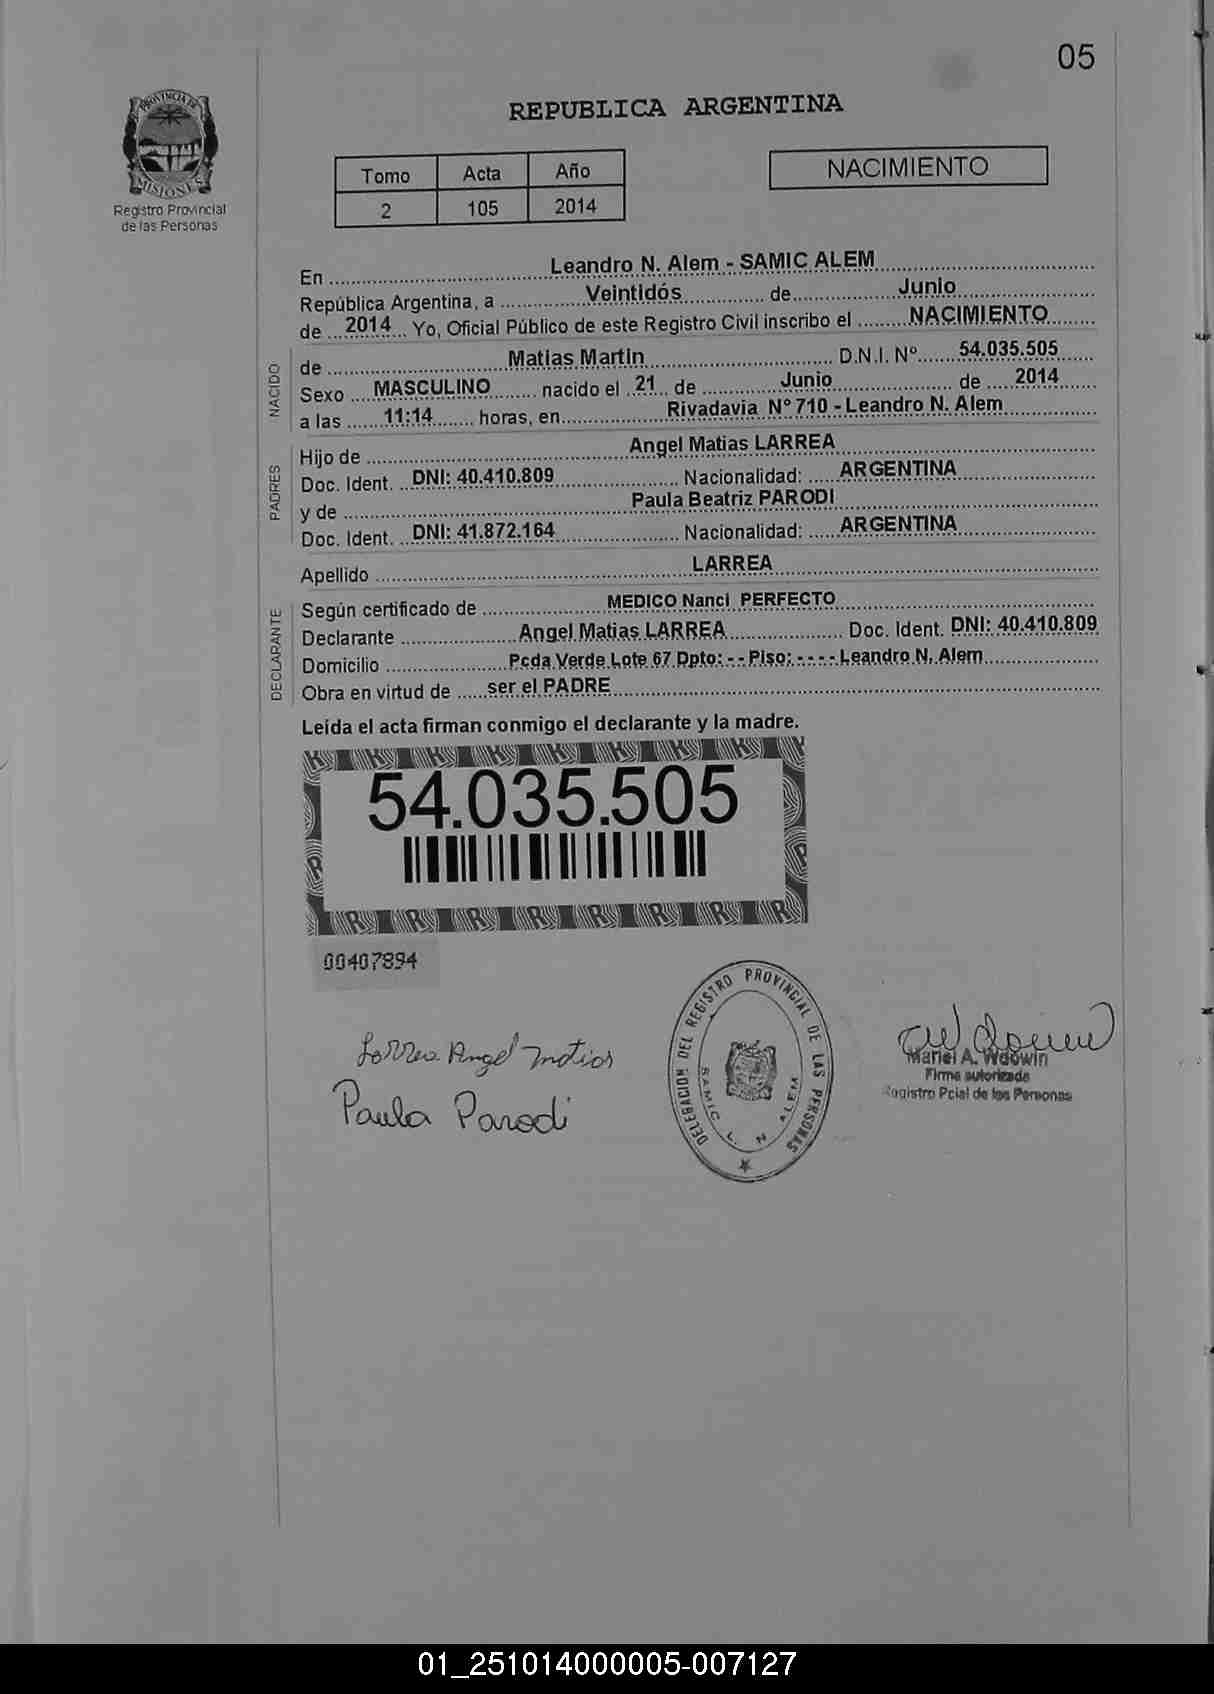 05
PROVINCIA DE
MISIONES
Registro Provincial
de las Personas
REPUBLICA ARGENTINA
Tomo Acta Año
2 105 2014
NACIMIENTO
En Leandro N. Alem - SAMIC ALEM
República Argentina, a Veintidós de Junio
de 2014 Yo, Oficial Público de este Registro Civil inscribo el NACIMIENTO
NACIDO
de Matias Martin D.N.I. Nº 54.035.505
Sexo MASCULINO nacido el 21 de Junio de 2014
a las 11:14 horas, en Rivadavia Nº 710 - Leandro N. Alem
PADRES
Hijo de Angel Matias LARREA
Doc. Ident. DNI: 40.410.809 Nacionalidad: ARGENTINA
y de Paula Beatriz PARODI
Doc. Ident. DNI: 41.872.164 Nacionalidad: ARGENTINA
Apellido LARREA
DECLARANTE
Según certificado de MEDICO Nanci PERFECTO
Declarante Angel Matias LARREA Doc. Ident. DNI: 40.410.809
Domicilio Pcda Verde Lote 67 Dpto: - - Piso: - - - - Leandro N. Alem
Obra en virtud de ser el PADRE
Leída el acta firman conmigo el declarante y la madre.
54.035.505
00407894
Larrea Angel Matias
Paula Parodi
DELEGACION DEL REGISTRO PROVINCIAL DE LAS PERSONAS
SAMIC L. N ALEM
Mariel A. Wdowin
Firma autorizada
Registro Pcial de las Personas
01_251014000005-007127